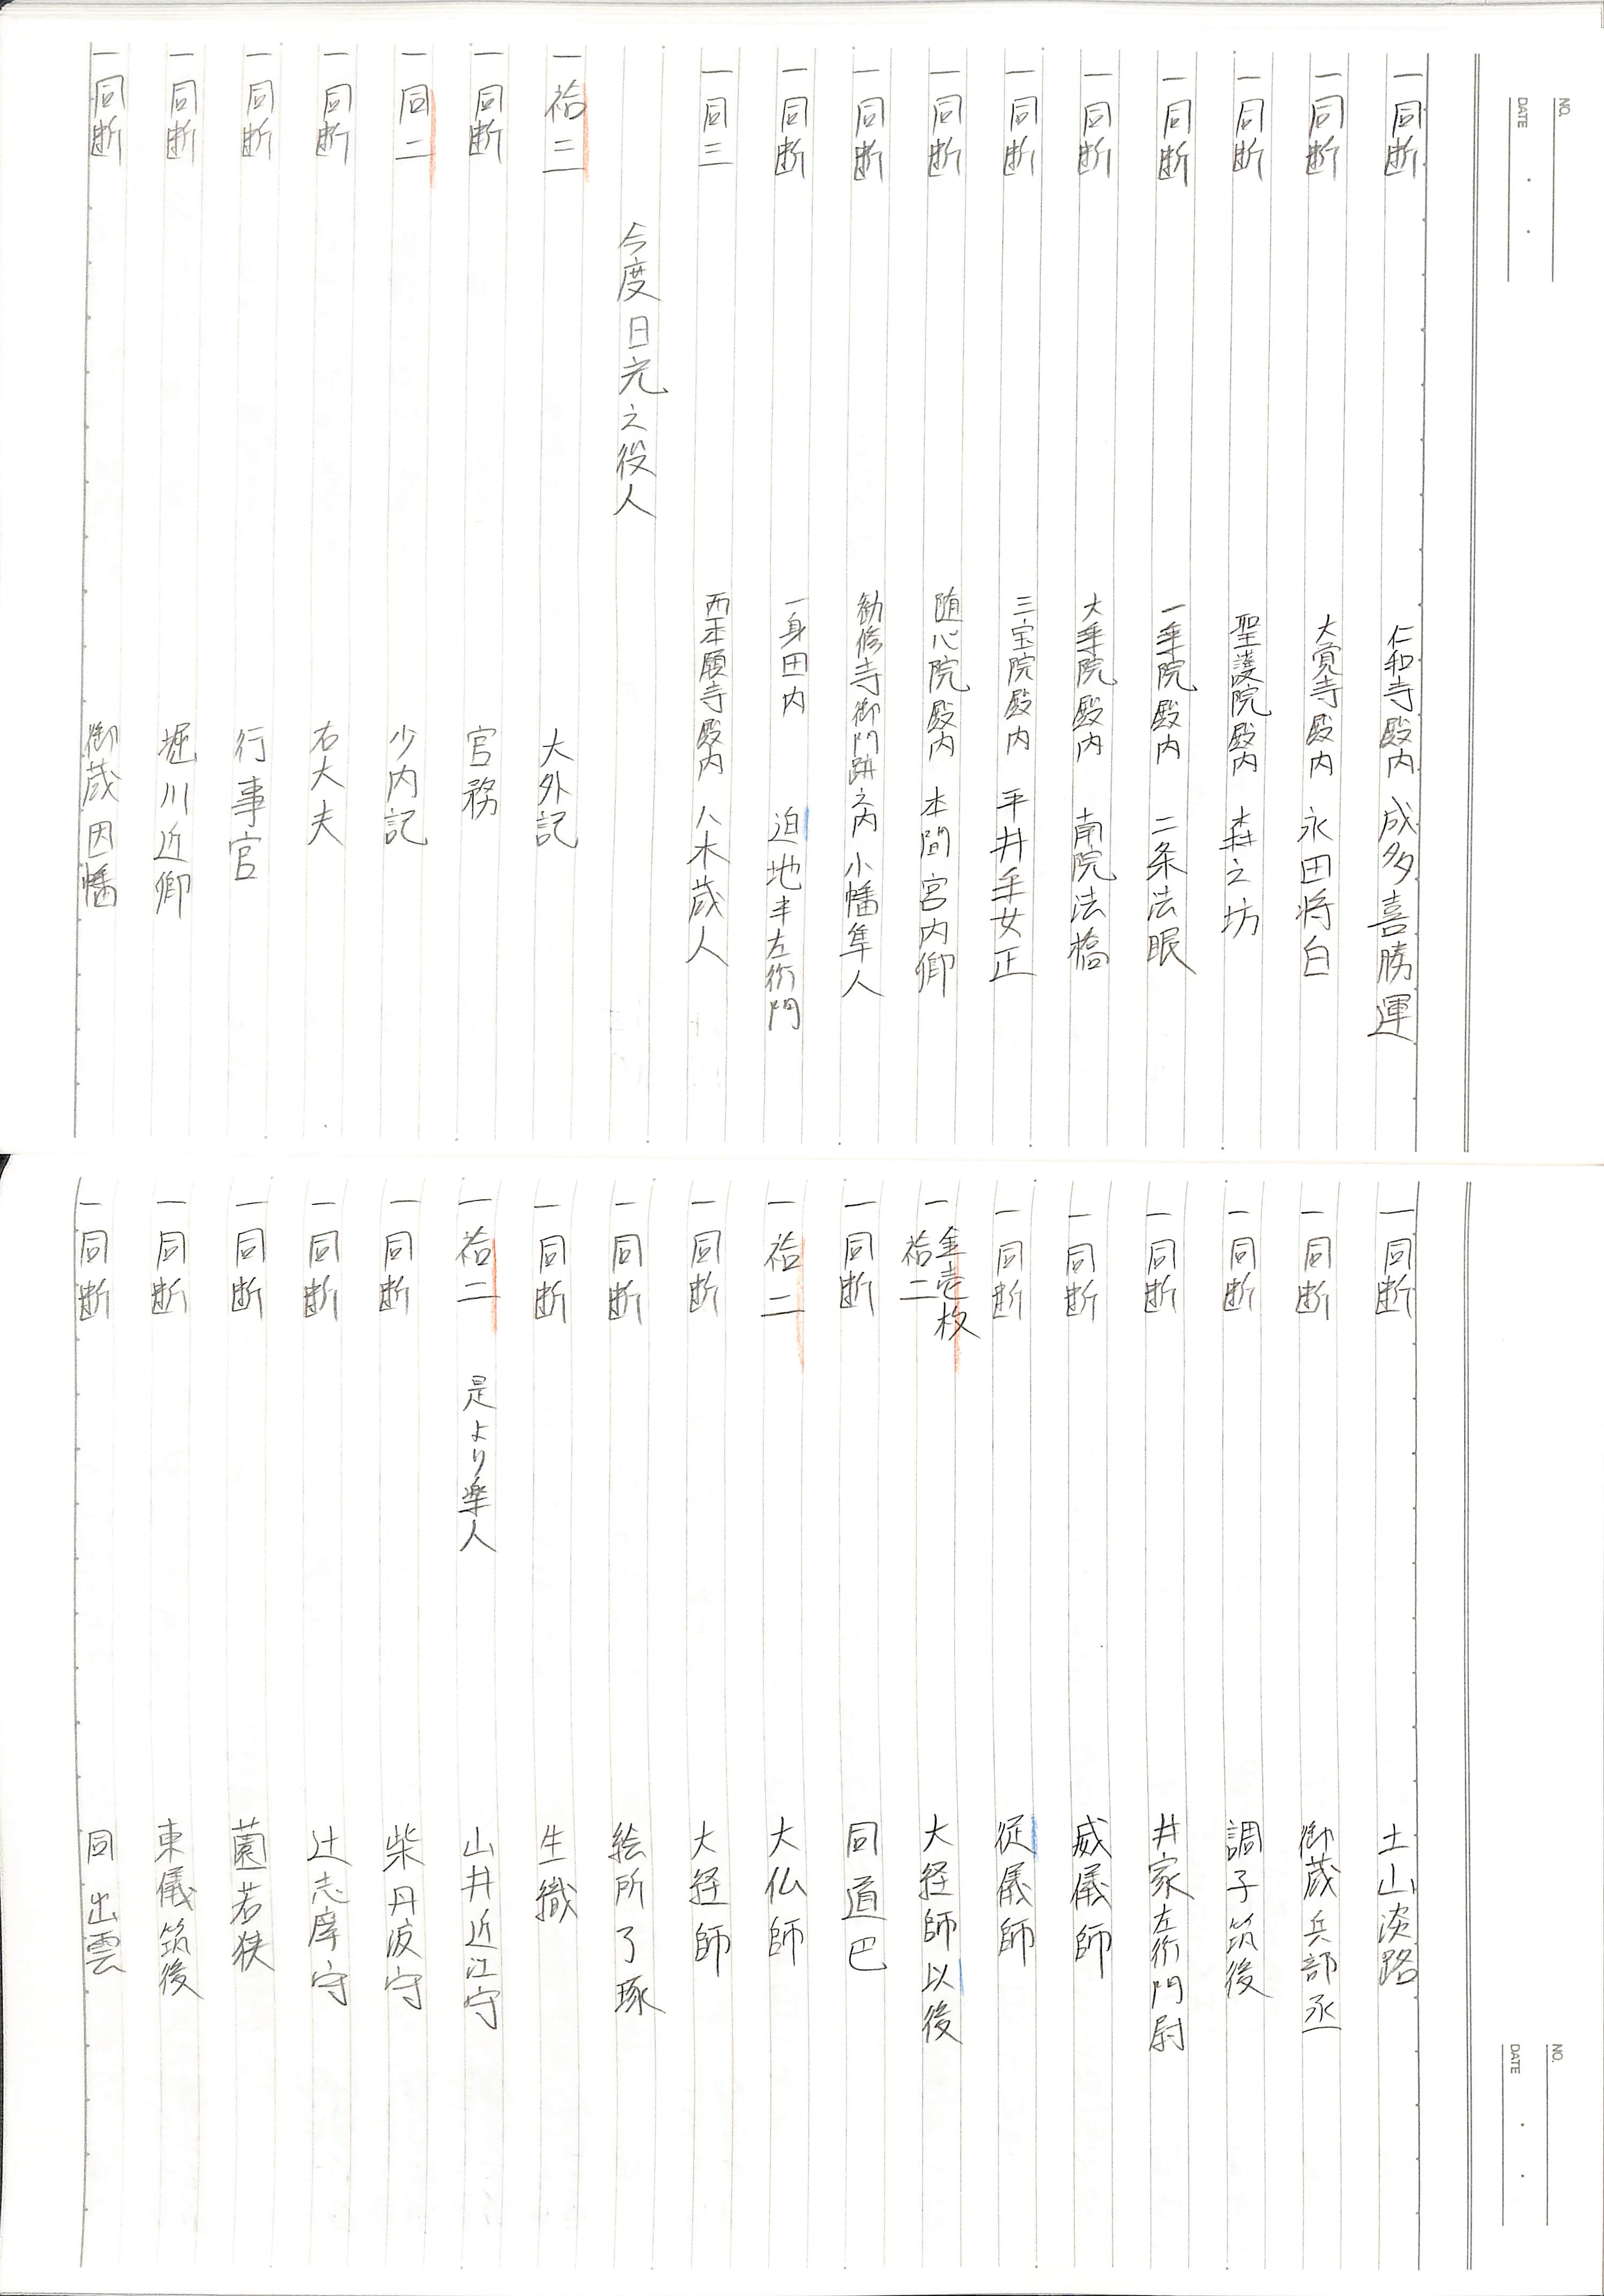 NO.
DATE
一同断 仁和寺殿内 成多喜勝運
一同断 大覚寺殿内 永田将白
一同断 聖護院殿内 森之坊
一同断 一乗院殿内 二条法眼
一同断 大乗院殿内 南院法橋
一同断 三宝院殿内 平井采女正
一同断 随心院殿内 本間宮内卿
一同断 勧修寺御門跡之内 小幡隼人
一同断 一身田内 迫地半左衛門
一同三 西本願寺殿内 八木蔵人
今度日光之役人
一袷三 大外記
一同断 官務
一同二 少内記
一同断 右大夫
一同断 行事官
一同断 堀川近卿
一同断 御蔵因幡
NO.
DATE
一同断 土山淡路
一同断 御蔵兵部丞
一同断 調子筑後
一同断 井家左衛門尉
一同断 威儀師
一同断 従儀師
一金壱枚 袷二 大経師以後
一同断 同道巴
一袷二 大仏師
一同断 大経師
一同断 絵所了琢
一同断 生織
一袷二 是より楽人 山井近江守
一同断 柴丹波守
一同断 辻志摩守
一同断 薗若狭
一同断 東儀筑後
一同断 同出雲